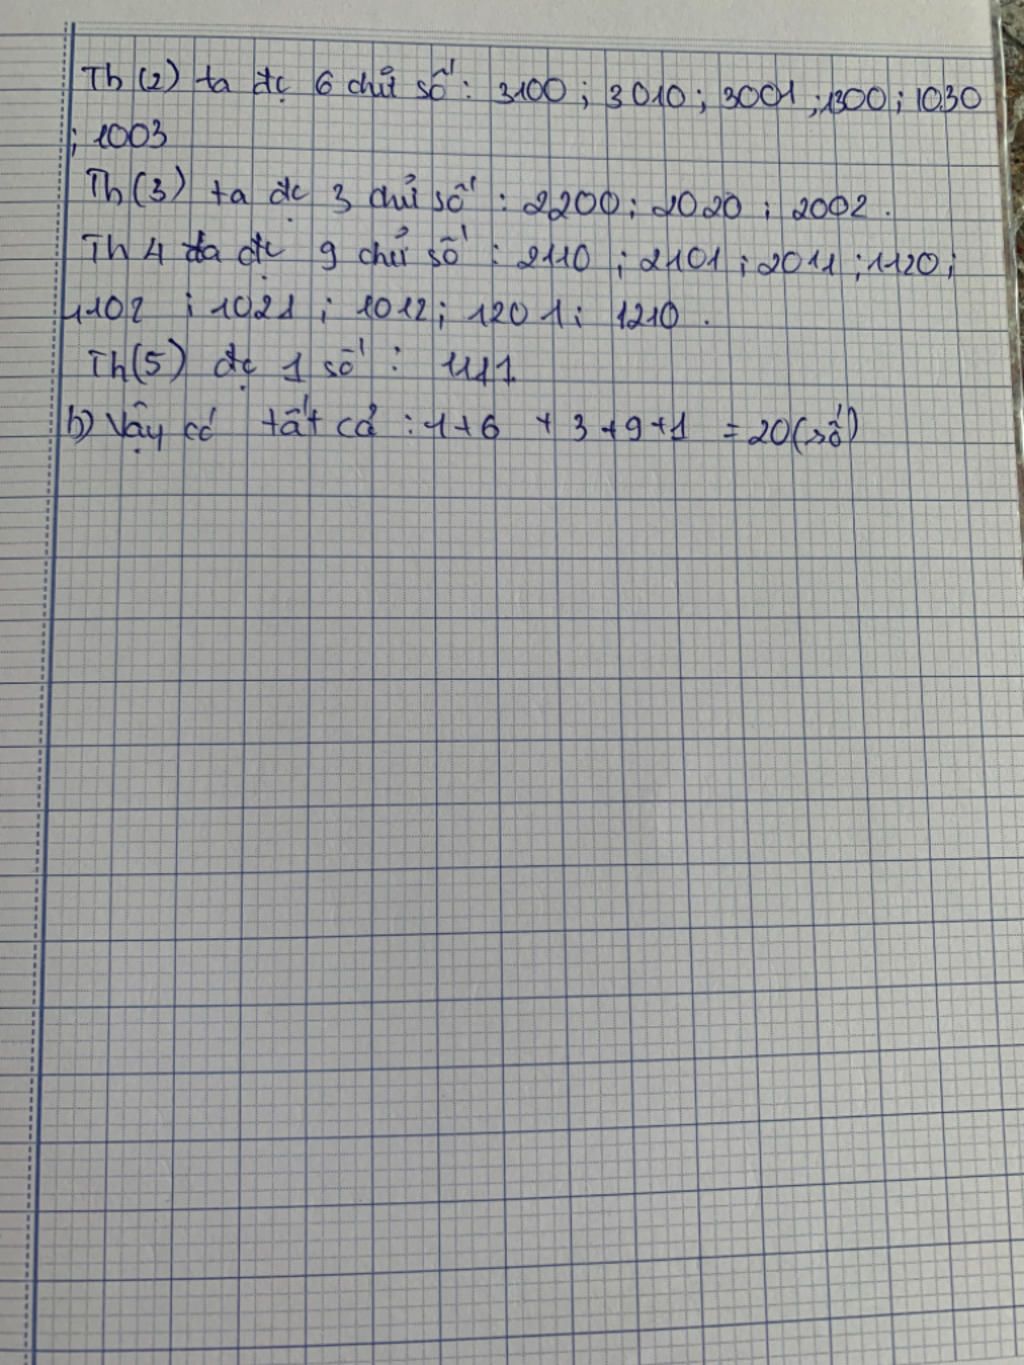 Th(2) ta đc 6 chữ số : 3100 ; 3010 ; 3001 ; 1300 ; 1030
; 1003
Th(3) ta đc 3 chữ số : 2200 ; 2020 ; 2002 .
Th 4 ta đc 9 chữ số : 2110 ; 2101 ; 2011 ; 1120 ;
1102 ; 1021 ; 1012 ; 1201 ; 1210 .
Th(5) đc 1 số : 1111
b) Vậy có tất cả : 1 + 6 + 3 + 9 + 1 = 20 (số)